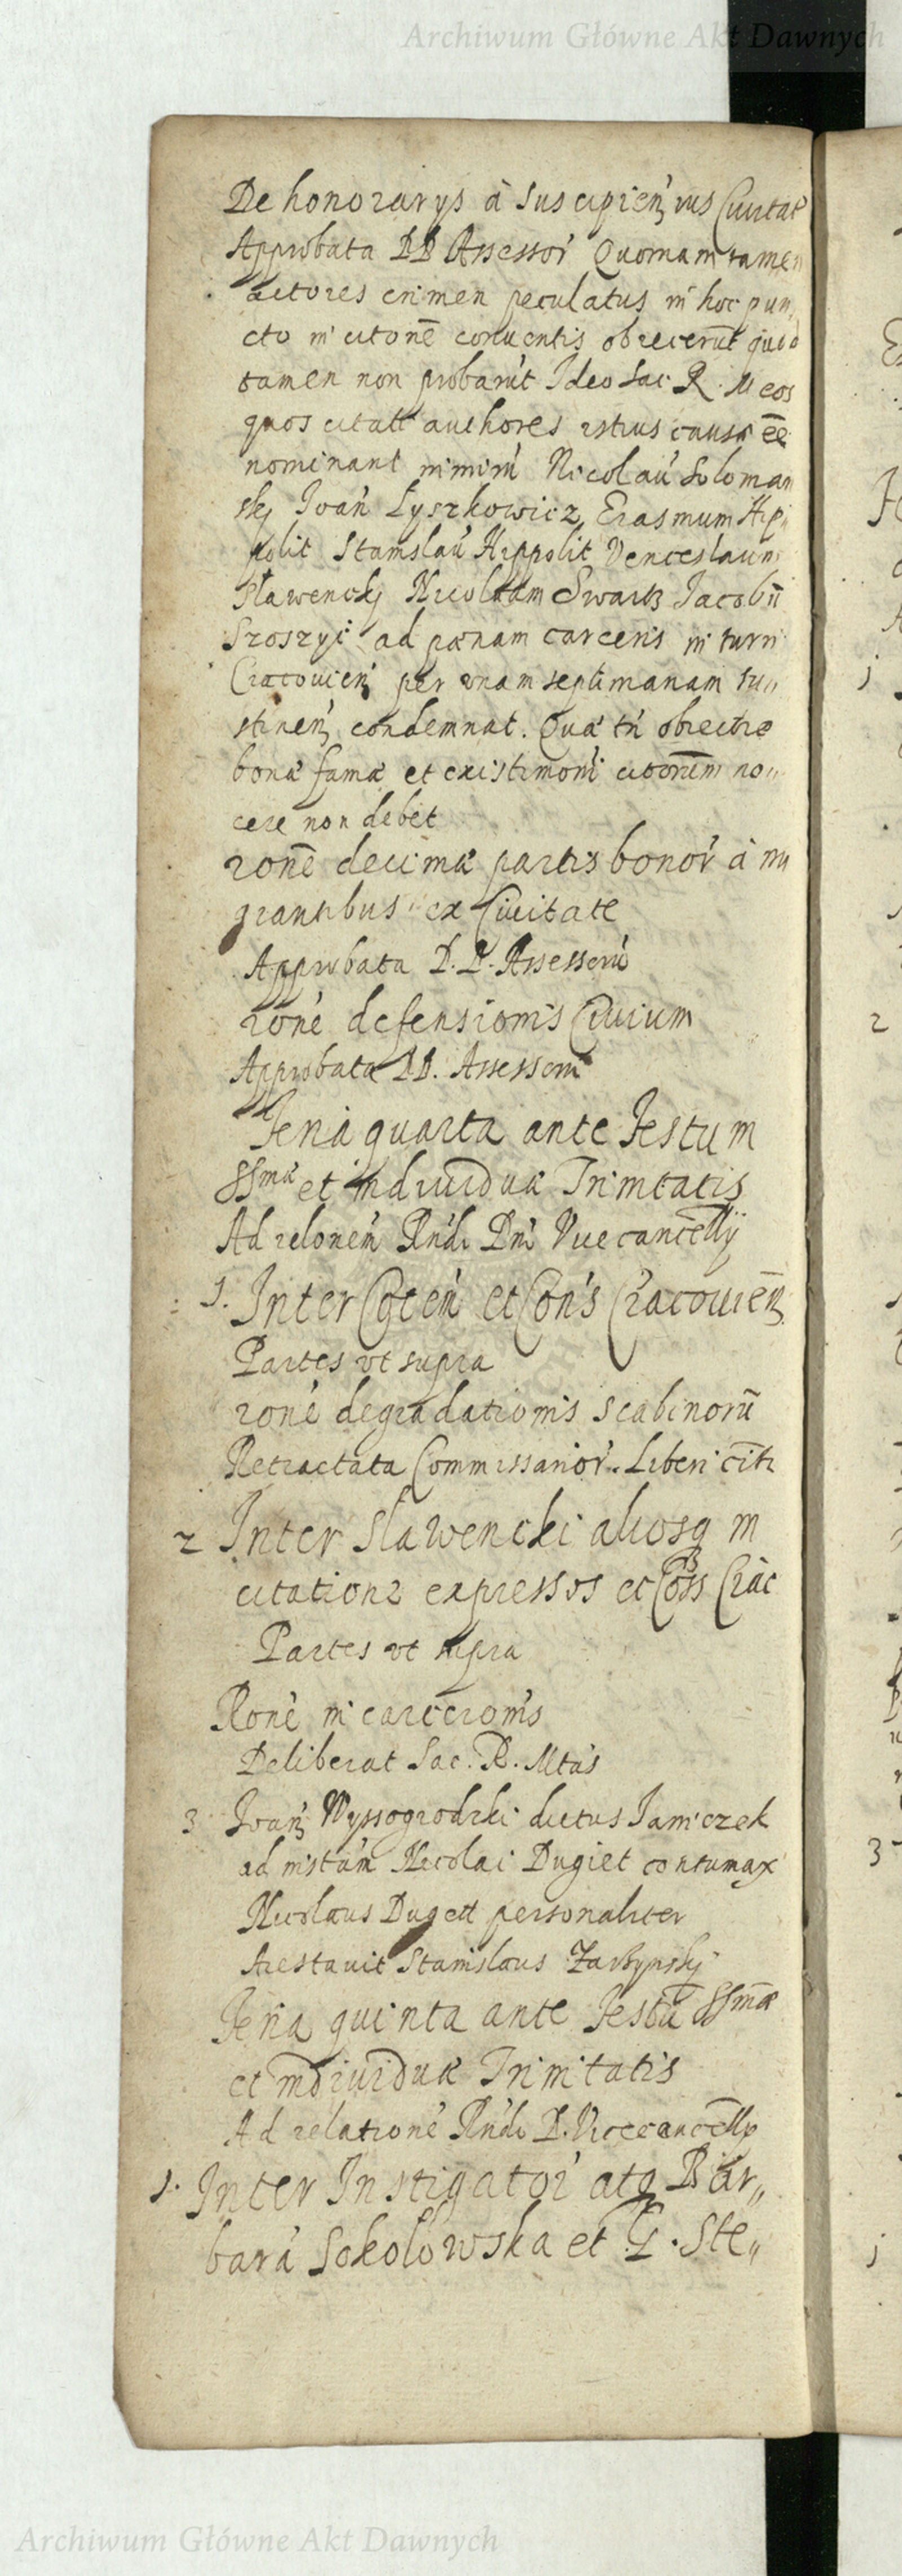 Archiwum Główne Akt Dawnych
De honorarys à suscipien ius Civitat
Approbata DD Assessor Quoniam tamen
actores crimen peculatus in hoc pun
cto in citone conventis obiecerut quod
tamen non probarut Ideo Sac R. M eos
quos citati authores istius causa ee
nominant nimiru Nicolau Soloman
skj Ioan Łyszkowicz, Erasmum Hip
polit Stanislau Hippolit Venceslaum
Sławenckj Nicolaum Swartz Iacobu
Szoszyi ad pœnam carceris in turri
Cracovien per vnam septimanam su"
stinen condemnat. Qua tn obiectio
bona fama et existimoni citorum no"
cere non debet
rone decima partis bonor à mi
grantibus ex Civitate
Approbata D.D. Assessoru
rone defensionis Civium
Approbata DD. Assessoru
Feria quarta ante Festum
SSma et individua Trinitatis
Ad relonem Rndi Dni Vicecancelly
1. Inter Coten et Cons Cracovien
Partes vt supra
rone degradationis scabinoru
Retractata Commissarior. Liberi citi
2 Inter Sławencki aliosq in
citatione expressos et Coss Crac
Partes vt supra
Rone incarceronis
Deliberat Sac. R. Mtas
3 Ioan Wyssogrodzki dictus Janiczek
ad instan Nicolai Dugiet contumax
Nicolaus Dugett personaliter
Arestavit Stanislaus
Feria quinta ante Festu SSmæ
et individua Trinitatis
Ad relatione Rndi D. Vicecancelly
1. Inter Instigator atq Bar"
bara Sokolowska et G. Ste"
Archiwum Główne Akt Dawnych